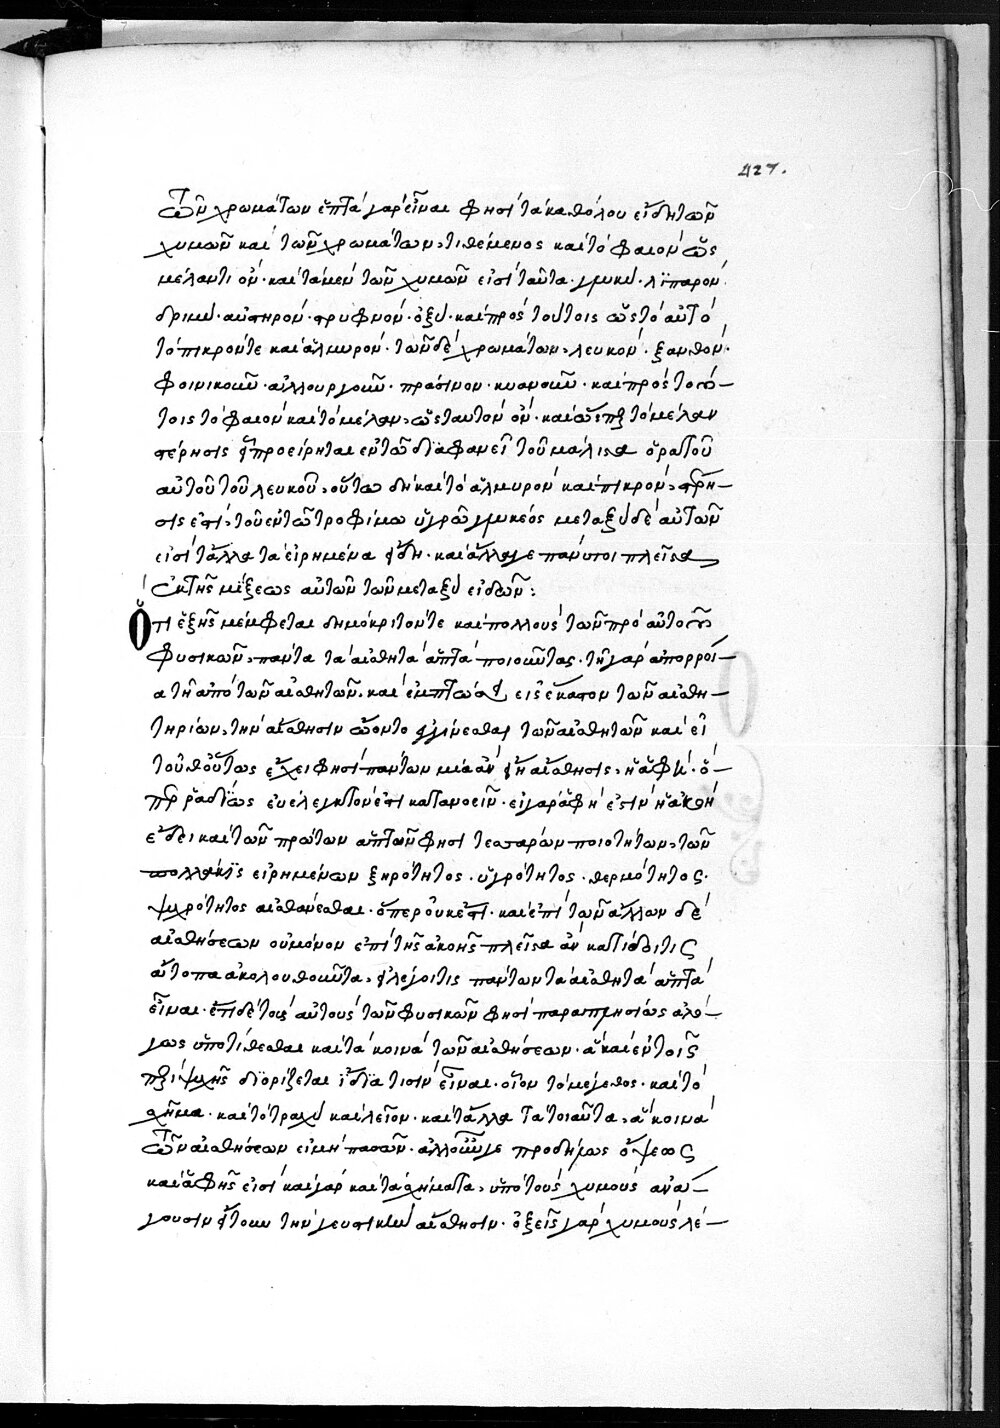 427.
τῶν χρωμάτων ἑπτὰ γὰρ εἶναι φησὶ τὰ καθόλου εἴδη τῶν
χυμῶν καὶ τῶν χρωμάτων, τιθέμενος καὶ τὸ φαιὸν ὡς
μέλαν τι ὄν· καὶ τὰ μὲν τῶν χυμῶν εἰσὶ ταῦτα· γλυκύ· λϊπαρόν·
δριμύ· αὐστηρόν· στρυφνόν· ὀξύ· καὶ πρὸς τούτοις ὡς τὸ αὐτὸ
τὸ πικρόν τε καὶ ἁλμυρόν· τῶν δὲ χρωμάτων, λευκόν· ξανθόν·
φοινικοῦν· ἁλλουργοῦν· πράσινον· κυανοῦν· καὶ πρὸς τού-
τοις τὸ φαιὸν καὶ τὸ μέλαν, ὡς ταυτὸν ὄν· καὶ ὥσπερ τὸ μέλαν
στέρησις ἢ προείρηται ἐν τῷ διαφανεῖ τοῦ μάλιστα ὁρατοῦ
αὐτοῦ τοῦ λευκοῦ, οὕτω δὴ καὶ τὸ ἁλμυρὸν καὶ πικρόν, στέρη-
σις ἐστὶ, τοῦ ἐν τῷ τροφίμω ὑγρῷ γλυκέος μεταξὺ δὲ αὐτῶν
εἰσὶ τἄλλα τὰ εἰρημένα ἤδη· καὶ ἄλλα γε πάνυ τοι πλεῖστα
ἐκ τῆς μίξεως αὐτῶν τῶν μεταξὺ εἰδῶν:
Ὅτι ἑξῆς μέμφεται δημόκριτόν τε καὶ πολλοὺς τῶν πρὸ αὐτοῦ
φυσικῶν, πάντα τὰ αἰσθητὰ ἁπτὰ ποιοῦντας· τῇ γὰρ ἀπορροί-
α τῇ ἀπὸ τῶν αἰσθητῶν· καὶ ἐμπτώσει εἰς ἕκαστον τῶν αἰσθη-
τηρίων, τὴν αἴσθησιν ᾤοντο γίνεσθαι τῶν αἰσθητῶν καὶ εἰ
τοῦθ' οὕτως ἔχει φησὶ πάντων μία ἂν ἦ αἴσθησις, ἡ ἁφή· ὅ-
περ ῥαδίως εὐέλεγκτον ἐστὶ κατανοεῖν· εἰ γὰρ ἁφὴ ἐστὶν ἡ ἀκοὴ
ἔδει καὶ τῶν πρώτων ἁπτῶν φησὶ τεσσάρων ποιοτήτων, τῶν
πολλάκϊς εἰρημένων ξηρότητος· ὑγρότητος· θερμότητος·
ψυχρότητος αἰσθάνεσθαι· ὅπερ οὐκ ἔστι· καὶ ἐπὶ τῶν ἄλλων δὲ
αἰσθήσεων οὐ μόνον ἐπὶ τῆς ἀκοῆς πλεῖστα ἂν κατίδοι τις
ἄτοπα ἀκολουθοῦντα, εἰ λέγοι τις πάντων τὰ αἰσθητὰ ἁπτὰ
εἶναι· ἔτι δὲ τοὺς αὐτοὺς τῶν φυσικῶν φησὶ παραπλησίως ἀλό-
γως ὑποτίθεσθαι καὶ τὰ κοινὰ τῶν αἰσθήσεων· ἃ καὶ ἐν τοῖς
περὶ ψυχῆς διορίζεται ἴδϊά τισιν εἶναι· οἷον τὸ μέγεθος· καὶ τὸ
σχῆμα· καὶ τὸ τραχὺ καὶ λεῖον· καὶ τἄλλα τὰ τοιαῦτα, ἃ κοινὰ
τῶν αἰσθήσεων εἰ μὴ πασῶν· ἀλλ' οὖν γε προδήλως ὄψεως
καὶ ἁφῆς εἰσὶ καὶ γὰρ καὶ τὰ σχήματα, ὑπὸ τοὺς χυμοὺς ἀνά-
γουσιν ἤτοι τὴν γευστικὴν αἴσθησιν· ὀξεῖς γὰρ χυμοὺς λέ-